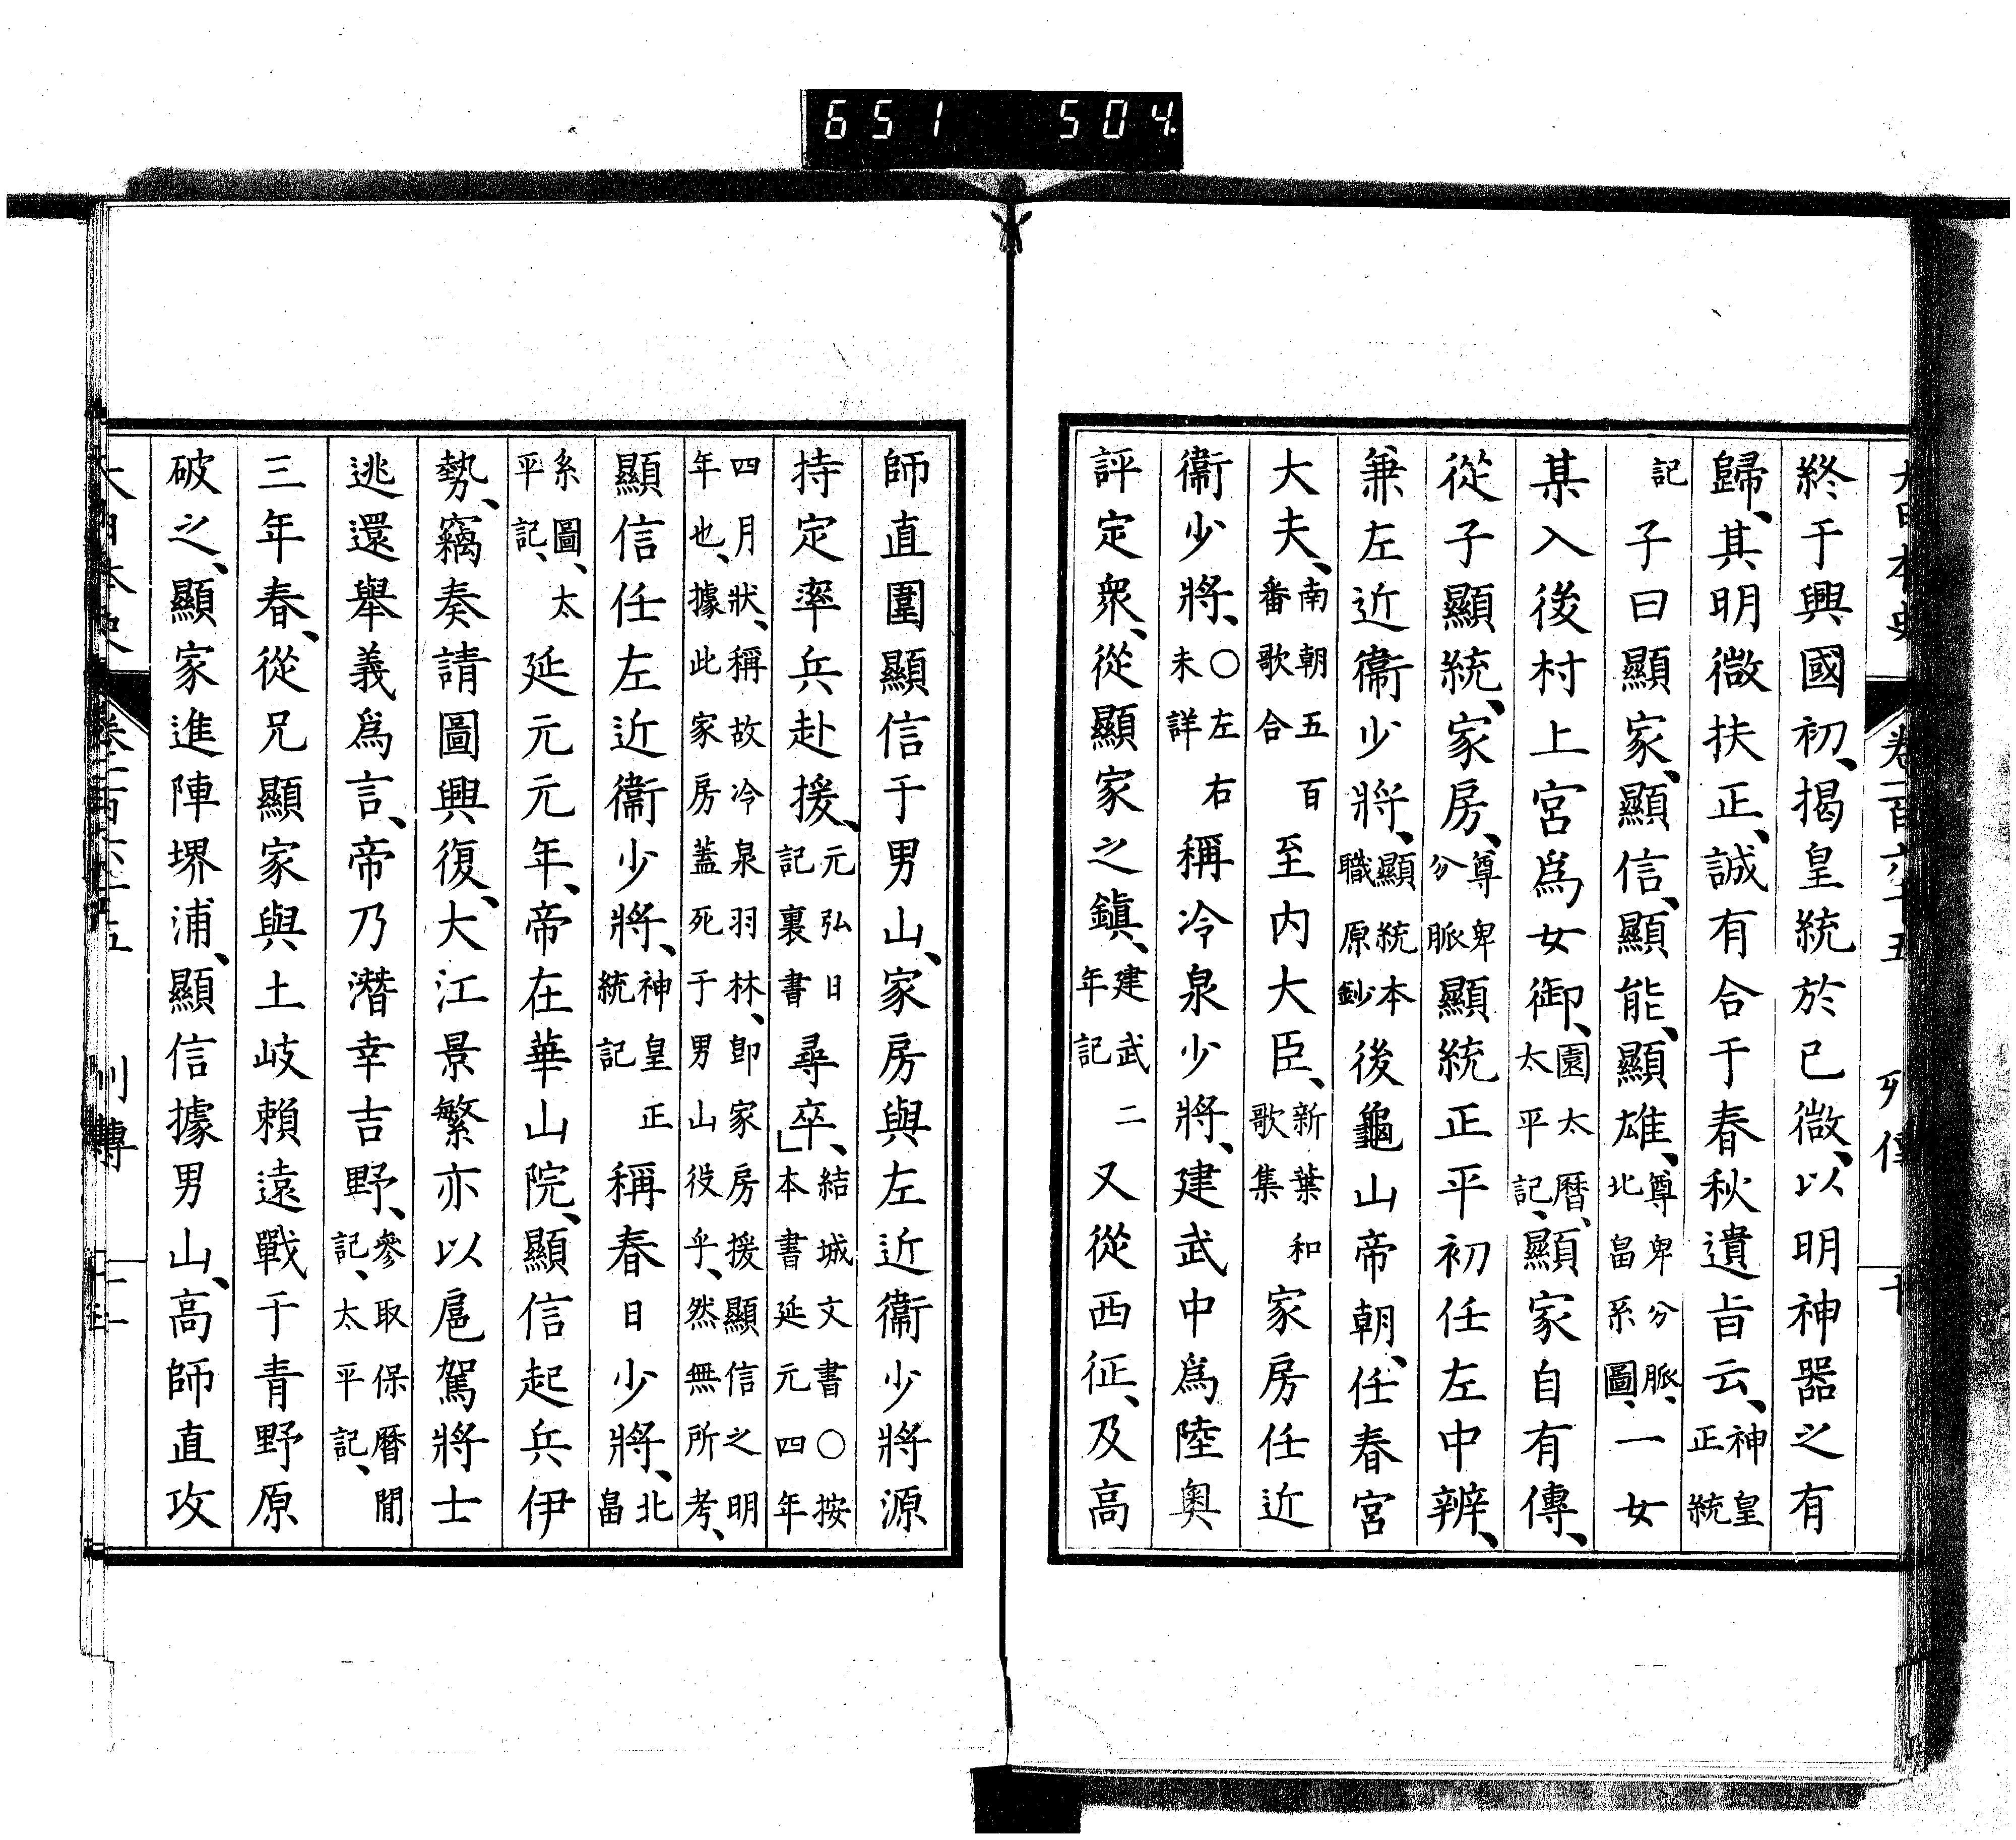 651 504
終于興國初、揭皇統於已微、以明神器之有
歸、其明微扶正、誠有合于春秋遺旨云、神皇正統
記子曰顯家、顯信、顯能、顯雄、尊卑分脈、北畠系圖、一女
某入後村上宮爲女御、園太曆、太平記、顯家自有傳、
從子顯統、家房、尊卑分脈顯統正平初任左中辨、
兼左近衞少將、顯統本職原鈔後龜山帝朝、任春宮
大夫、南朝五百番歌合至内大臣、新葉和歌集家房任近
衞少將、○左右未詳稱冷泉少將、建武中爲陸奧
評定衆、從顯家之鎭、建武二年記又從西征、及高
師直圍顯信于男山、家房與左近衞少將源
持定率兵赴援、元弘日記裏書尋卒、結城文書○按本書延元四年
四月狀、稱故冷泉羽林、卽家房援顯信之明年也、據此家房蓋死于男山役乎、然無所考、
顯信任左近衞少將、神皇正統記稱春日少將、北畠
系圖、太平記、延元元年、帝在華山院、顯信起兵伊
勢、竊奏請圖興復、大江景繁亦以扈駕將士
逃還舉義爲言、帝乃潛幸吉野、參取保曆閒記、太平記、
三年春、從兄顯家與土岐賴遠戰于青野原
破之、顯家進陣堺浦、顯信據男山、高師直攻